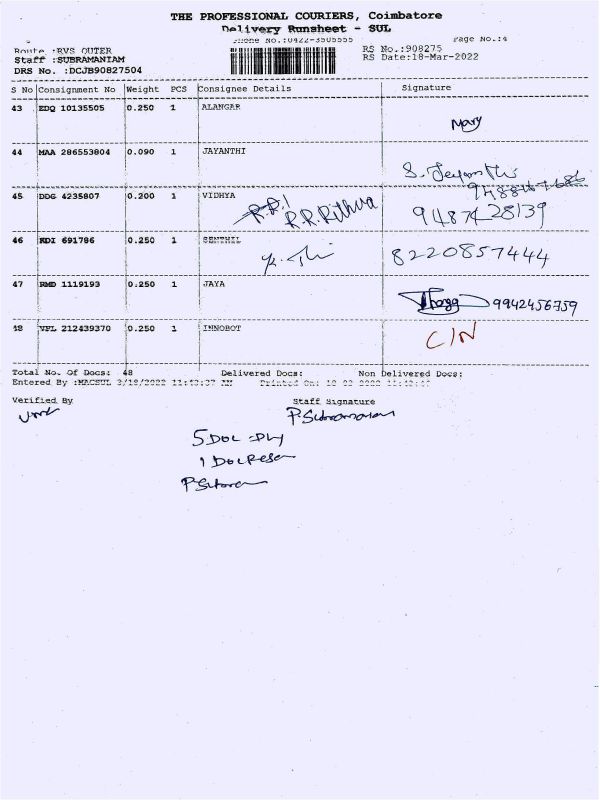 THE PROFESSIONAL COURIERS, Coimbatore
Delivery Runsheet - SUL
Phone No.:0422-3505555 Page No.:4
Route :RVS OUTER RS No.:908275
Staff :SUBRAMANIAM RS Date:18-Mar-2022
DRS No. :DCJB90827504
S No Consignment No Weight PCS Consignee Details Signature
43 EDQ 10135505 0.250 1 ALANGAR
Mary
44 MAA 286553804 0.090 1 JAYANTHI
S. Jeyanthi
45 DDG 4235807 0.200 1 VIDHYA
R.R. Rithva 9487428139
46 KDI 691786 0.250 1 SENTHIL
8220857444
47 RMD 1119193 0.250 1 JAYA
9942456759
48 VPL 212439370 0.250 1 INNOBOT
C/N
Total No. Of Docs: 48 Delivered Docs: Non Delivered Docs:
Entered By :MACSUL 3/18/2022 Printed On:
Verified By Staff Signature
P. Subramanian
5 Doc
1 Doc